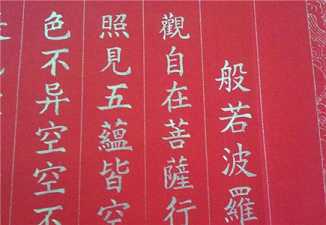 般若波羅
觀自在菩薩行
照見五蘊皆空
色不异空空不